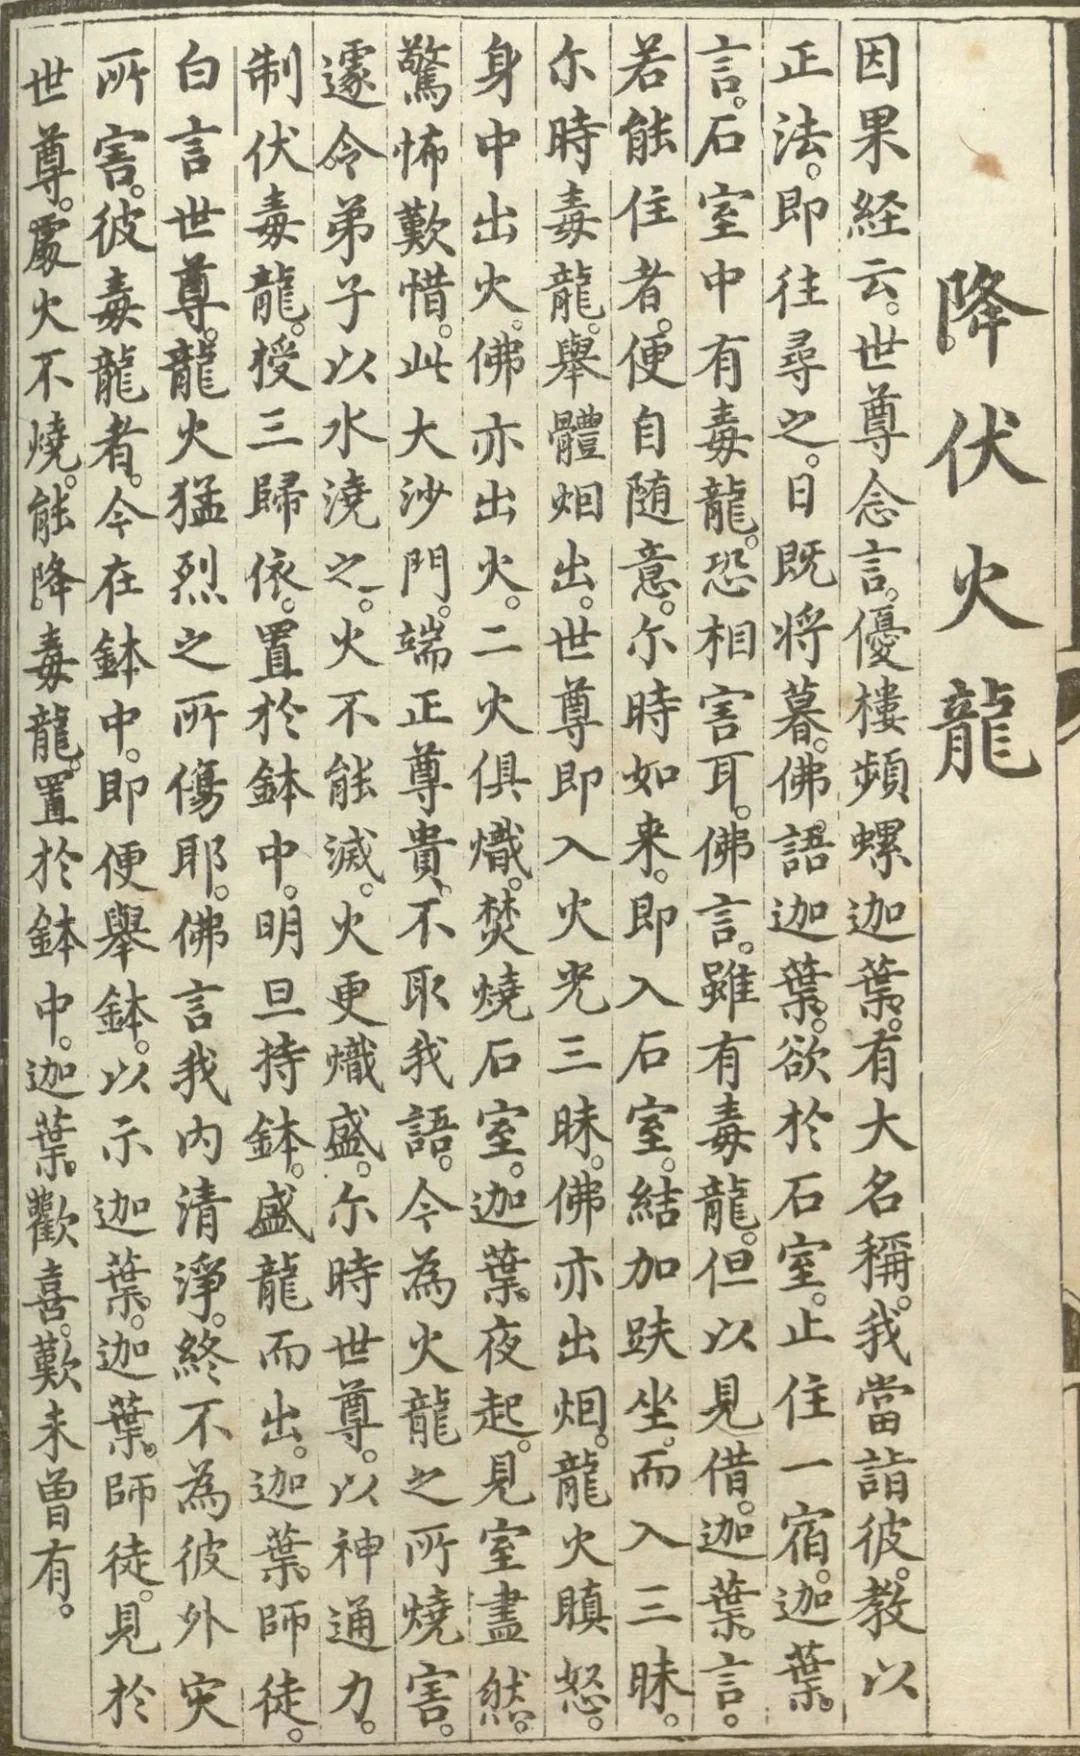 降伏火龍
因果経云。世尊念言。優樓頻螺迦葉。有大名稱。我當詣彼。教以
正法。即往尋之。日既將暮。佛語迦葉。欲於石室。止住一宿。迦葉。
言。石室中有毒龍。恐相害耳。佛言。雖有毒龍。但以見借。迦葉。言。
若能住者。便自随意。尓時如来。即入石室。結加趺坐。而入三昧。
尓時毒龍。舉體烟出。世尊即入火光三昧。佛亦出烟。龍火瞋怒。
身中出火。佛亦出火。二火俱熾。焚燒石室。迦葉。夜起。見室盡然。
驚怖歎惜。此大沙門。端正尊貴、不取我語。今為火龍之所燒害。
遽令弟子以水澆之。火不能滅。火更熾盛。尓時世尊。以神通力。
制伏毒龍。授三歸依。置於鉢中。明旦持鉢。盛龍而出。迦葉。師徒。
白言世尊。龍火猛烈之所傷耶。佛言我內清淨。終不為彼外灾
所害。彼毒龍者。今在鉢中。即便舉鉢。以示迦葉。迦葉。師徒。見於
世尊。處火不燒。能降毒龍。置於鉢中。迦葉。歡喜。歎未曾有。